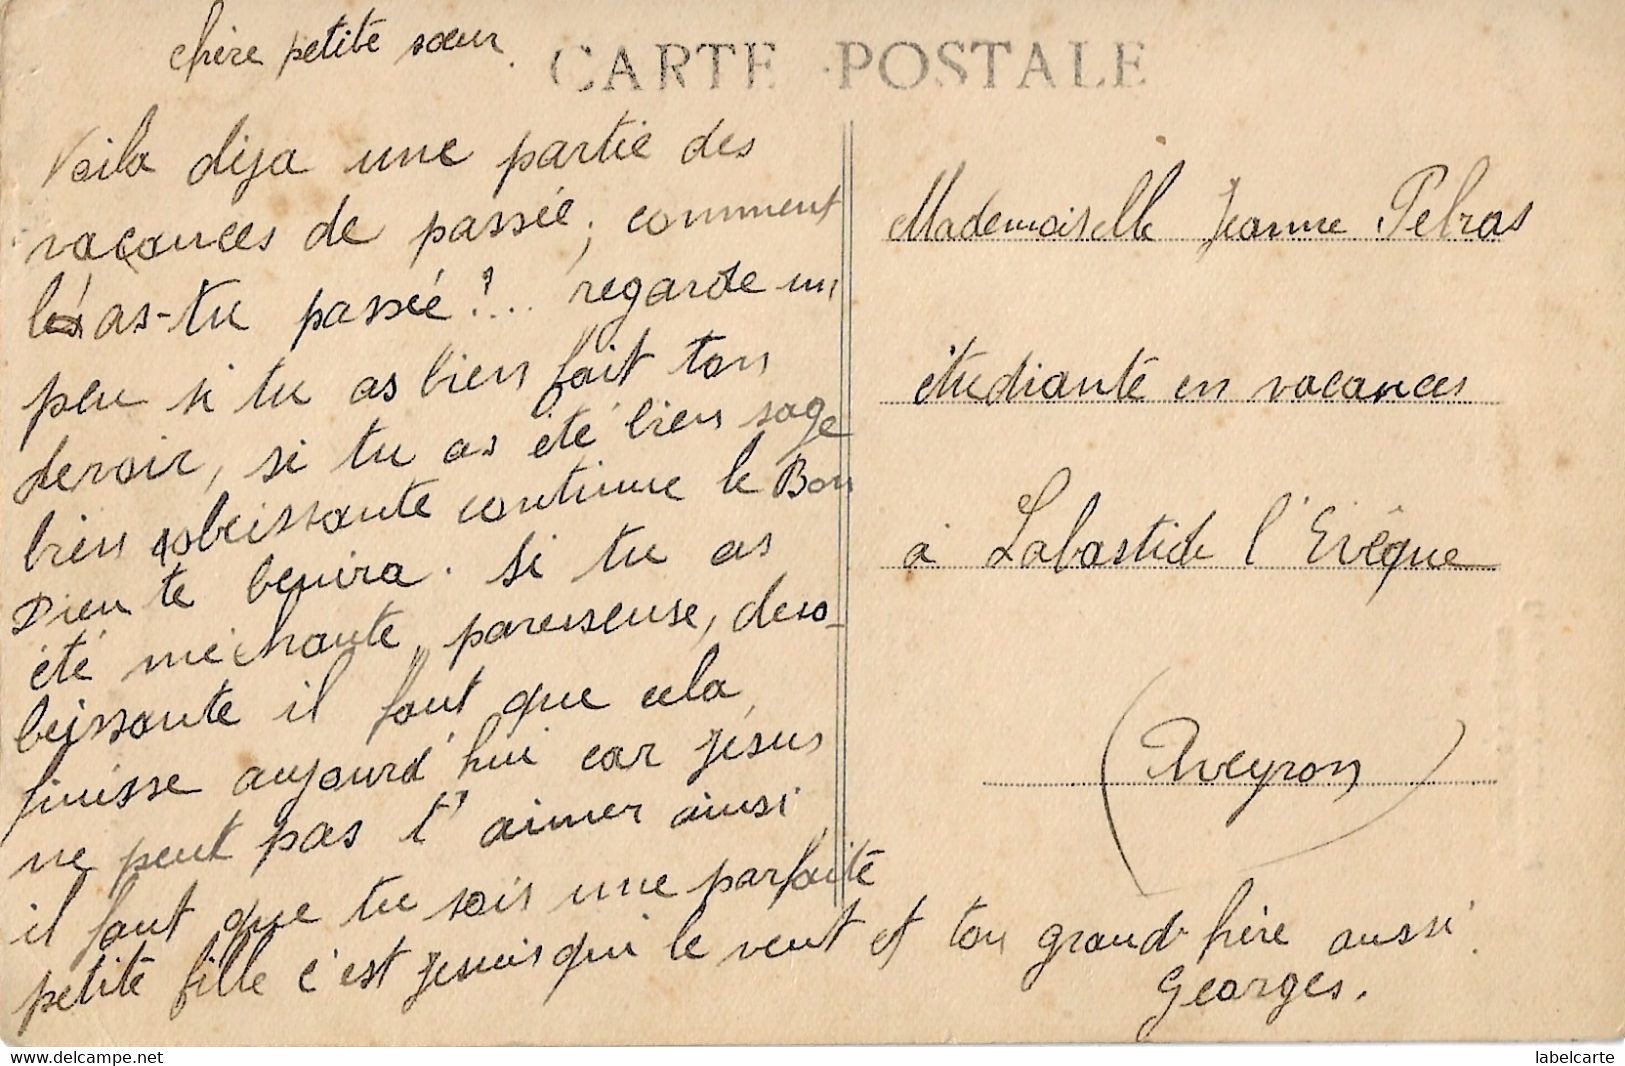 chère petite sœur.
CARTE POSTALE
Voila dija une partie des
vacances de passée, comment
l'as-tu passée?... regarde un
peu si tu as bien fait ton
devoir, si tu as été bien sage
bien obeissante continue le Bon
Dieu te benira. Si tu as
été méchante, paresseuse, deso-
beissante il faut que cela
finisse aujourd'hui car Jésus
ne peut pas t'aimer ainsi
il faut que tu sois une parfaite
petite fille c'est Jesus qui le veut et ton grand frère aussi.
Georges.
Mademoiselle Jeanne Pelras
étudiante en vacances
à Labastide l'Evêque
(Aveyron)
www.delcampe.net
labelcarte